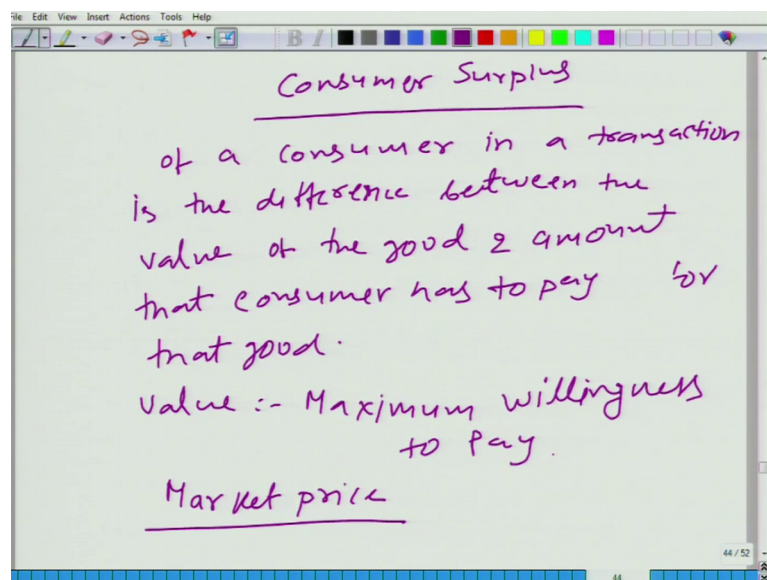 File Edit View Insert Actions Tools Help
Consumer Surplus
of a consumer in a transaction
is the difference between the
value of the good & amount
that consumer has to pay for
that good.
value :- Maximum willingness
to pay.
Market price
44 / 52
44